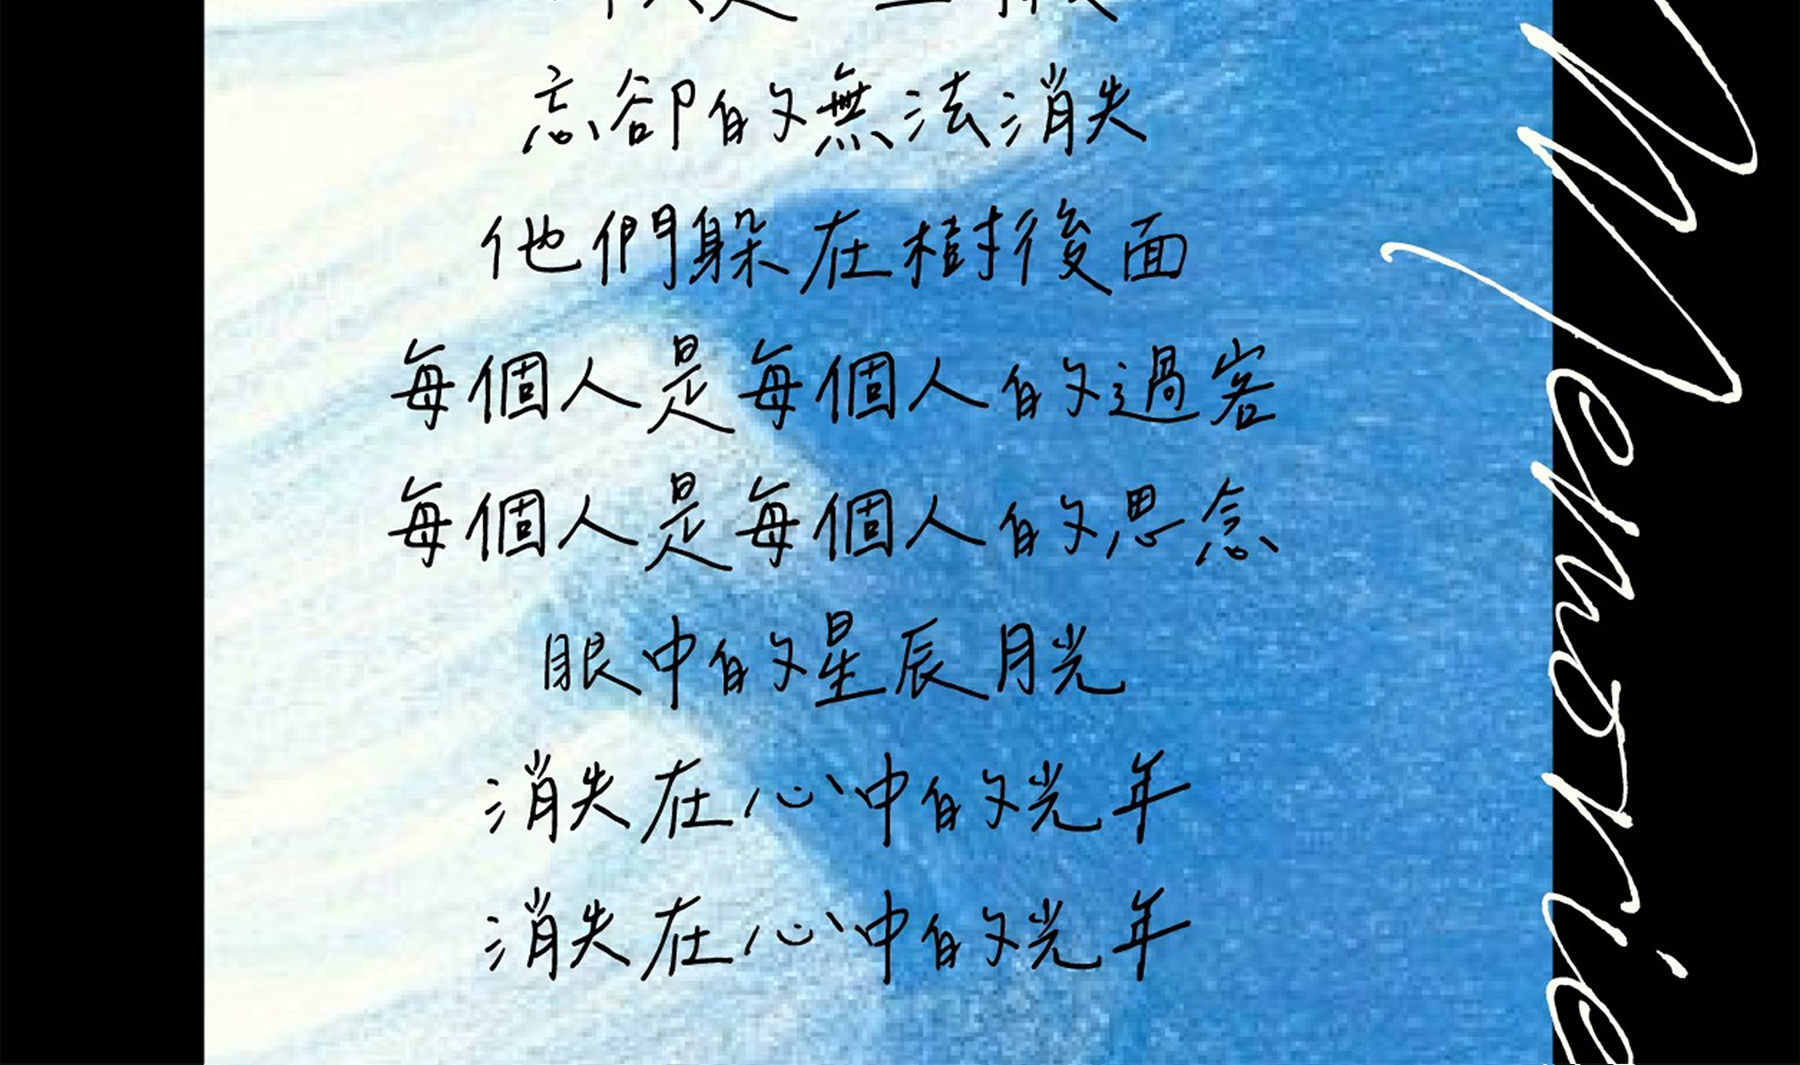 忘卻的無法消失
他們躲在樹後面
每個人是每個人的過客
每個人是每個人的思念
眼中的星辰月光
消失在心中的光年
消失在心中的光年
Memorie